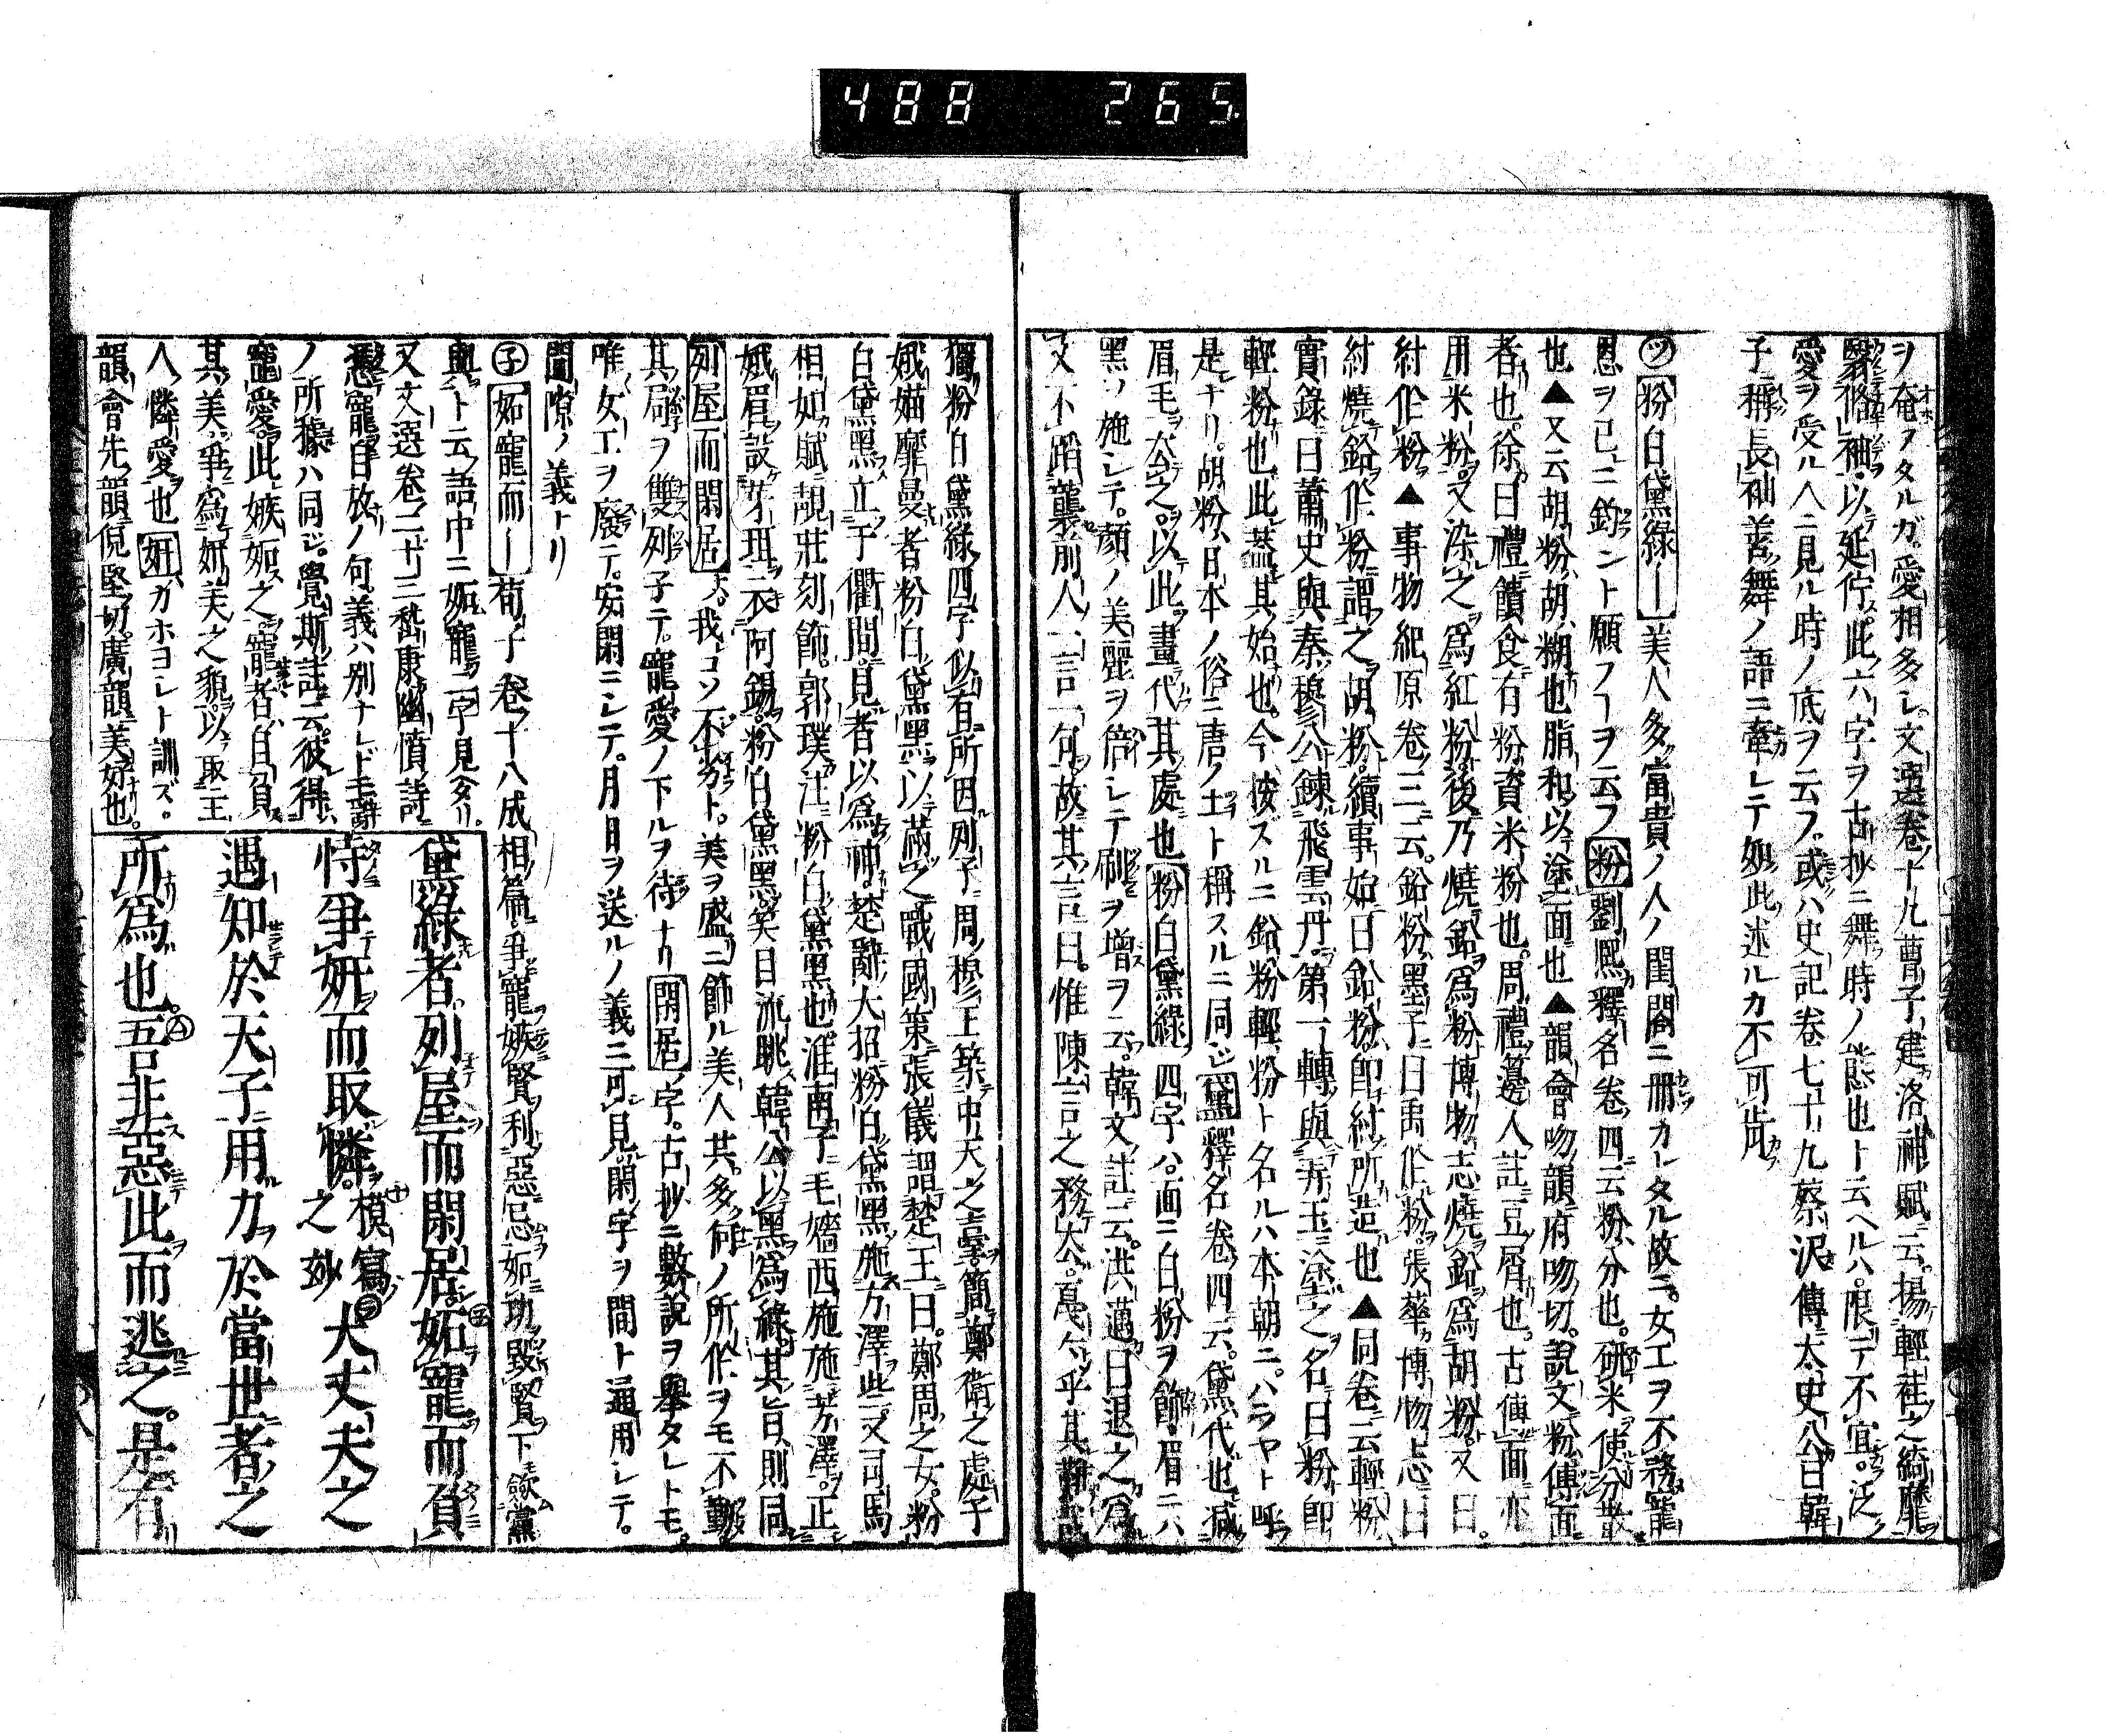 488 265
ヲ奄タルガ。愛相多シ。文選卷十九曹子建洛神賦云。揚輕袿之綺靡
翳脩袖以延佇。此六字ヲ古抄ニ舞時ノ態也ト云ヘルハ。限テ不宜。泛
愛ヲ受ル人ニ見ル時ノ底ヲ云フ。或ハ史記卷七十九蔡沢傳太史公曰韓
子稱長袖善舞ノ語ニ牽レテ如此述ルカ不可肯
ツ粉白黛綠ー美人多富貴ノ人ノ閨閤ニ冊カレタル故ニ。女工ヲ不務寵
恩ヲ己ニ釣ント願フヿヲ云フ粉劉熈釋名卷四云粉分也。研米使分散
也▲又云胡粉胡糊也脂和以塗面也▲韻會吻韻府吻切。說文粉傅面
者也。徐曰禮饋食有粉資米粉也。周禮籩人註豆屑也。古傅面亦
用米粉。又染之爲紅粉後乃燒鉛爲粉博物志燒鉛爲胡粉。又曰。
紂作粉▲事物紀原卷三云。鉛粉墨子曰禹作粉。張華博物志曰
紂燒鉛作粉謂之胡粉。續事始曰鉛粉。即紂所造也▲同卷云輕粉
實錄曰蕭史與秦穆公鍊飛雲丹。第一轉與弄玉塗之名曰粉即
輕粉也此蓋其始也。今按スルニ鉛粉輕粉ト名ルハ本朝ニ。ハラヤト呼
是ナリ。胡粉日本ノ俗ニ唐ノ土ト稱スルニ同ジ黛釋名卷四云。黛代也滅
眉毛去之。以此畫代其處也粉白黛綠四字ハ。面ニ白粉ヲ飾眉ニハ
黑ヲ施シテ。顏ノ美麗ヲ倍シテ刷ヲ增ヲ云。韓文註云。洪邁曰退之爲
文不蹈襲前人一言一句。故其言曰。惟陳言之務去。戛々乎其難哉
獨粉白黛綠四字似有所因。列子周穆王築中天之臺。簡鄭衛之處子
娥媌靡曼者粉白黛黑以滿之戰國策張儀謂楚王曰。鄭周之女。粉
白黛黑立于衢間見者以爲神。楚辭大招粉白黛黑施方澤些。又司馬
相如賦靚莊刻飾。郭璞注粉白黛黑也。淮南子毛嬙西施施芳澤。正
娥眉設笄珥衣阿錫。粉白黛黑。笑目流眺韓公以黑爲綠其旨則同
列屋而閑居天。我コソ不劣ト。美ヲ盛ニ飾ル美人共。多何ノ所作ヲモ不勤
其局ヲ雙列子テ。寵愛ノ下ルヲ待ナリ閑居字。古抄ニ數說ヲ舉タレトモ。
唯女工ヲ廢テ。安閑ニシテ。月日ヲ送ルノ義ニ可見。閑字ヲ間ト通用シテ。
間隙ノ義トリ
子妬寵而ー荀子卷十八成相篇。爭寵嫉賢利惡忌妬功毀賢下歛黨
與ト云語中ニ妬寵二字見タリ。
又文選卷二十三嵆康幽憤詩
憑寵自放ノ句。義ハ別ナレドモ辭
ノ所據ハ同ジ。覺斯註云。彼得
寵愛。此嫉妬之。寵者自負
其美爭爲妍美之貌。以取主
人憐愛也妍カホヨシト訓ズ。
韻會先韻倪堅切。廣韻美好也。
黛綠者。列屋而閑居。妬寵而負
恃爭妍而取憐。模寫之妙大丈夫之
遇知於天子用力於當世者之
所爲也。吾非惡此而逃之。是有